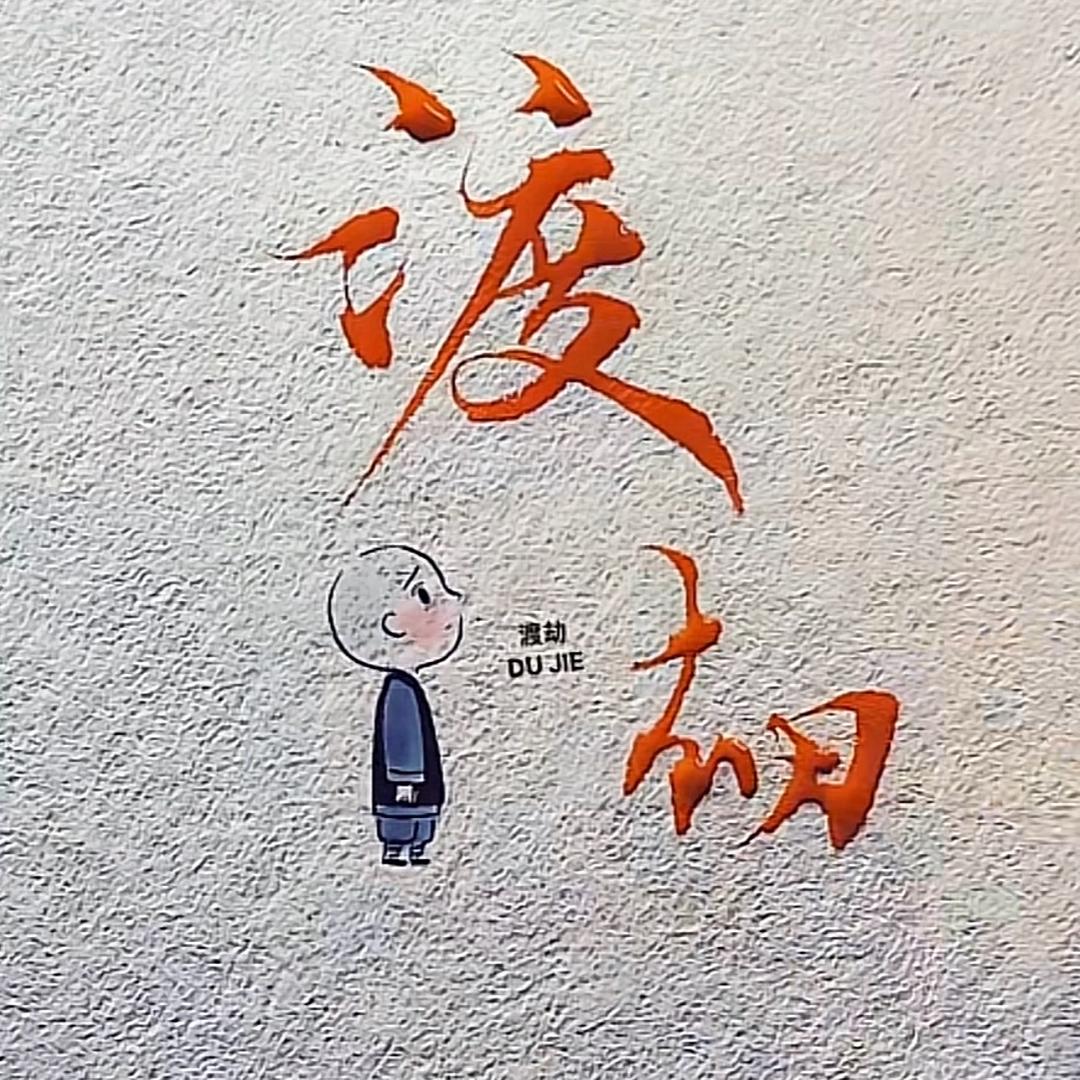 渡
劫
渡劫
DU JIE